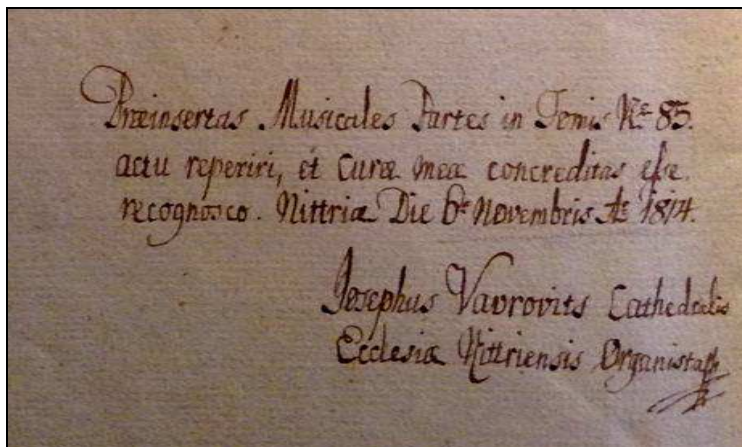 Præinsertas Musicales Partes in Tomis Nº 85.
actu reperiri, et Curæ meæ concreditas esse
recognosco. Nittriæ Die 6ª Novembris Aº 1814.
Josephus Vavrovits Cathedralis
Ecclesiæ Nittriensis Organista